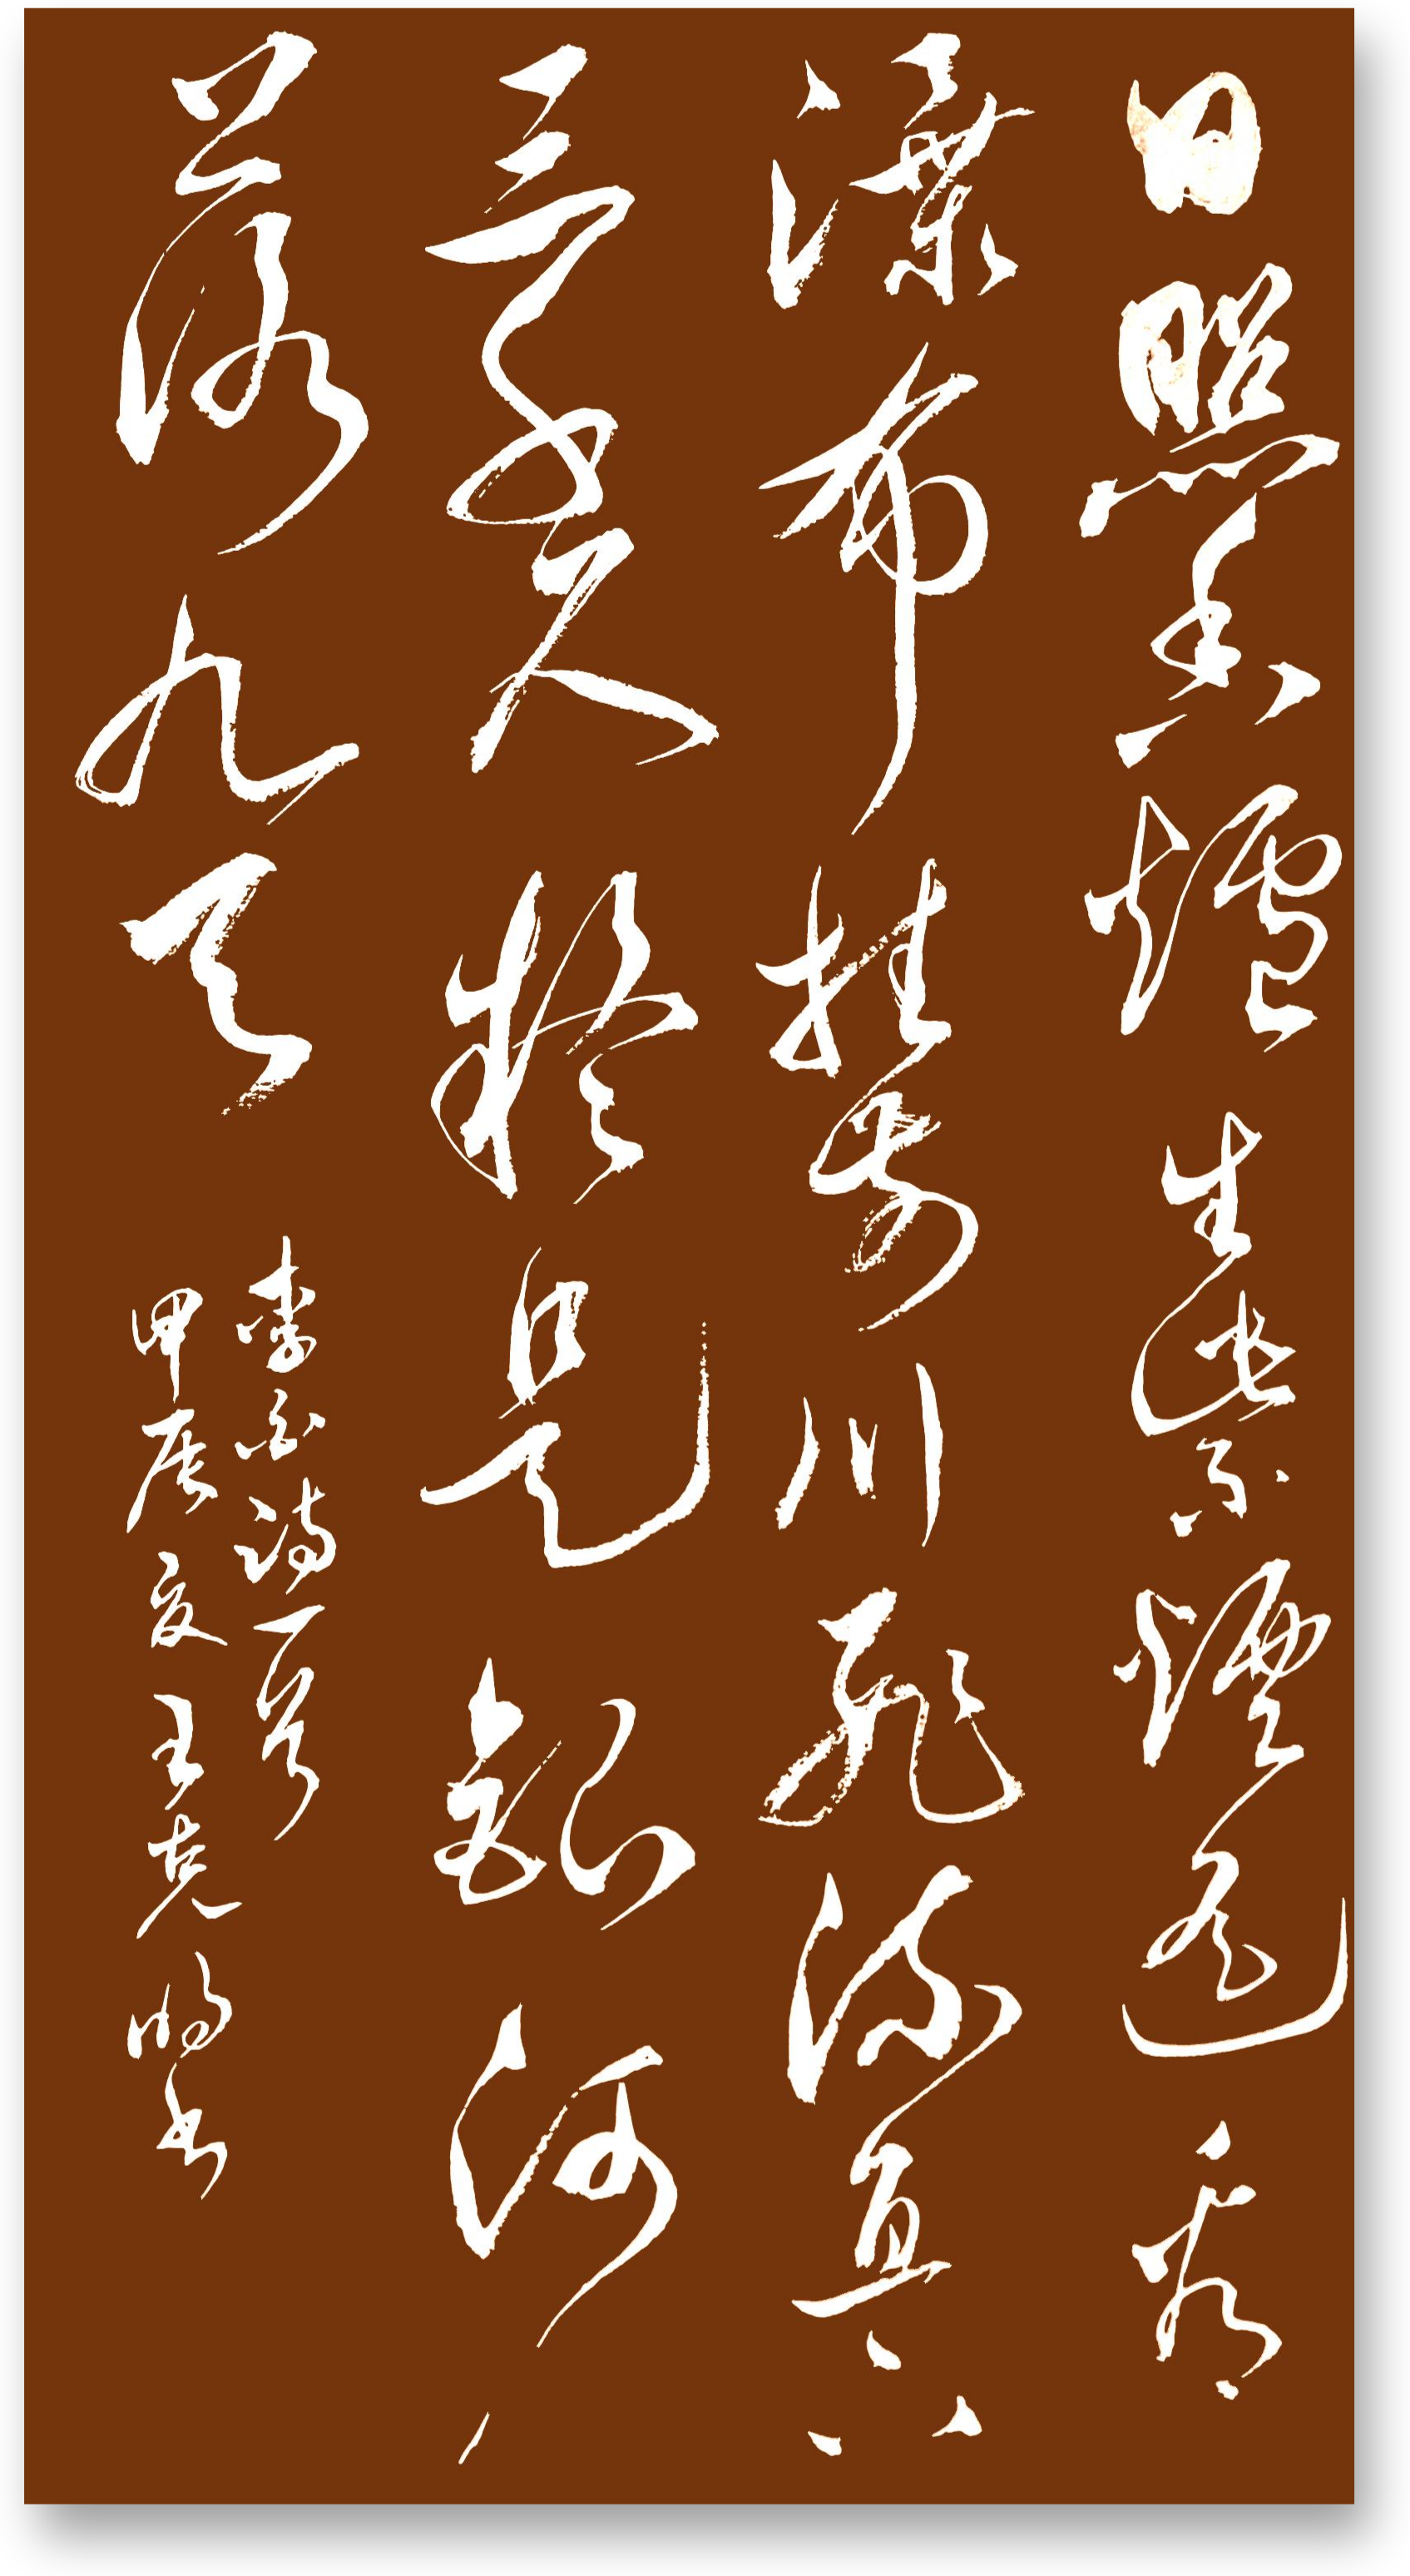 日照香爐生紫煙遙看
瀑布挂前川飛流直下
三千尺疑是銀河
落九天
李白詩一首
甲辰夏王克明书